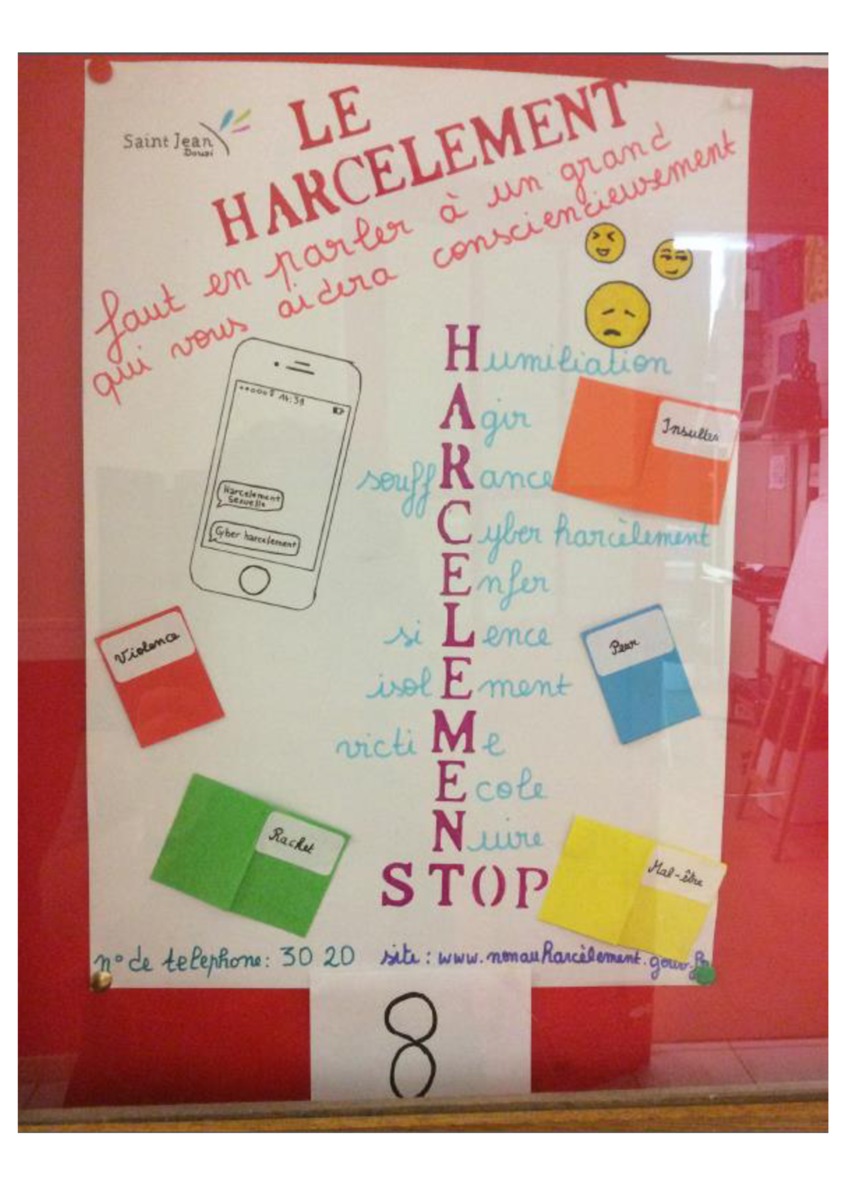 Saint Jean
Douai
LE
HARCELEMENT
faut en parler à un grand
qui vous aidera consciencieusement
14:31
Harcelement
Sexuelle
Cyber harcelement
Humiliation
Agir
Insultes
souffRance
Cyber harcèlement
Enfer
siLence
Violence
Peur
isolEment
victiMe
Ecole
Nuire
Racket
Mal-être
STOP
n° de telephone: 30 20 site: www.nonauharcèlement.gouv.fr
8